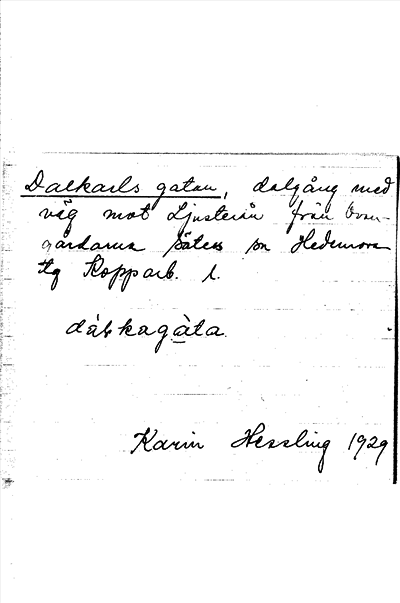 Dalkarlsgatan, dalgång med
väg mot Ljusterån från Ovan-
gårdarna Säters sn Hedemora
tg Kopparb. l.
Karin Hessling 1929